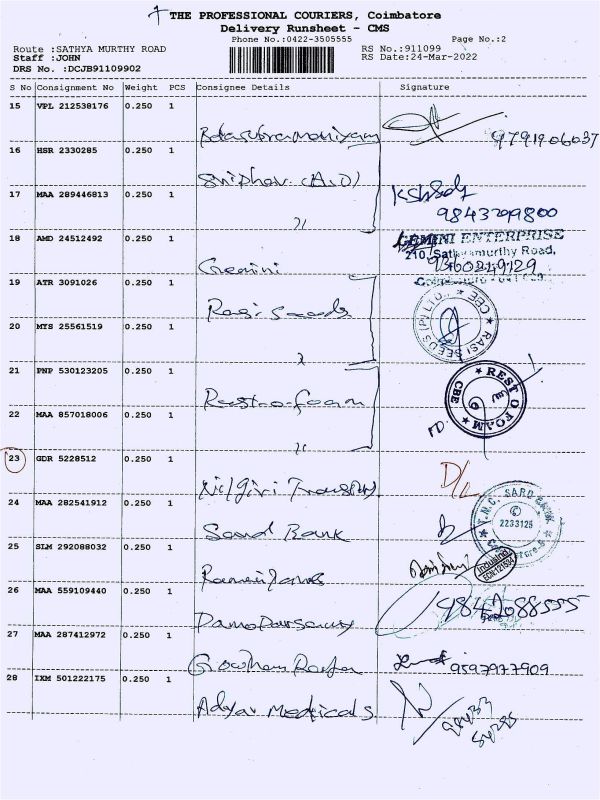 THE PROFESSIONAL COURIERS, Coimbatore
Delivery Runsheet - CMS
Phone No.:0422-3505555 Page No.:2
Route :SATHYA MURTHY ROAD RS No.:911099
Staff :JOHN RS Date:24-Mar-2022
DRS No. :DCJB91109902
S No Consignment No Weight PCS Consignee Details Signature
15 VPL 212538176 0.250 1
9791906037
16 HSR 2330285 0.250 1
17 MAA 289446813 0.250 1
9843799800
18 AMD 24512492 0.250 1 Gemini GEMINI ENTERPRISE
210, Sathyamurthy Road,
19 ATR 3091026 0.250 1 Rasi Seeds
RASI SEEDS (P) LTD. CBE
20 MTS 25561519 0.250 1
21 PNP 530123205 0.250 1 REST O FOAM CBE
22 MAA 857018006 0.250 1
23 GDR 5228512 0.250 1 Nilgiri D/L
24 MAA 282541912 0.250 1 Bank 2233125
25 SLM 292088032 0.250 1
26 MAA 559109440 0.250 1 9842088555
27 MAA 287412972 0.250 1 Gowtham 9597977909
28 IXM 501222175 0.250 1 Adyar Medicals